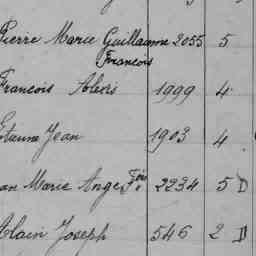 Pierre Marie Guillaume 2055 5
François
François Alexis 1999 4
Etienne Jean 1903 4
an Marie Ange Fois 2234 5 D
Alain Joseph 546 2 D